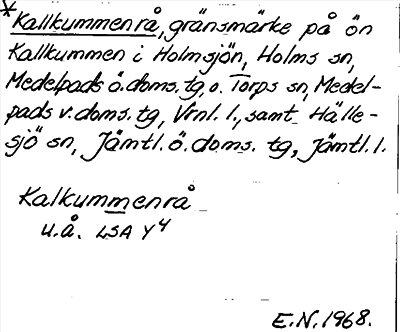 *Kallkummenrå, gränsmärke på ön
Kallkummen i Holmsjön, Holms sn,
Medelpads ö.doms.tg, o. Torps sn, Medel-
pads v.doms.tg, Vrnl. l., samt Hälle-
sjö sn, Jämtl.ö.doms. tg, Jämtl.l.
Kalkummenrå
u.å. LSA Y4
E.N.1968.